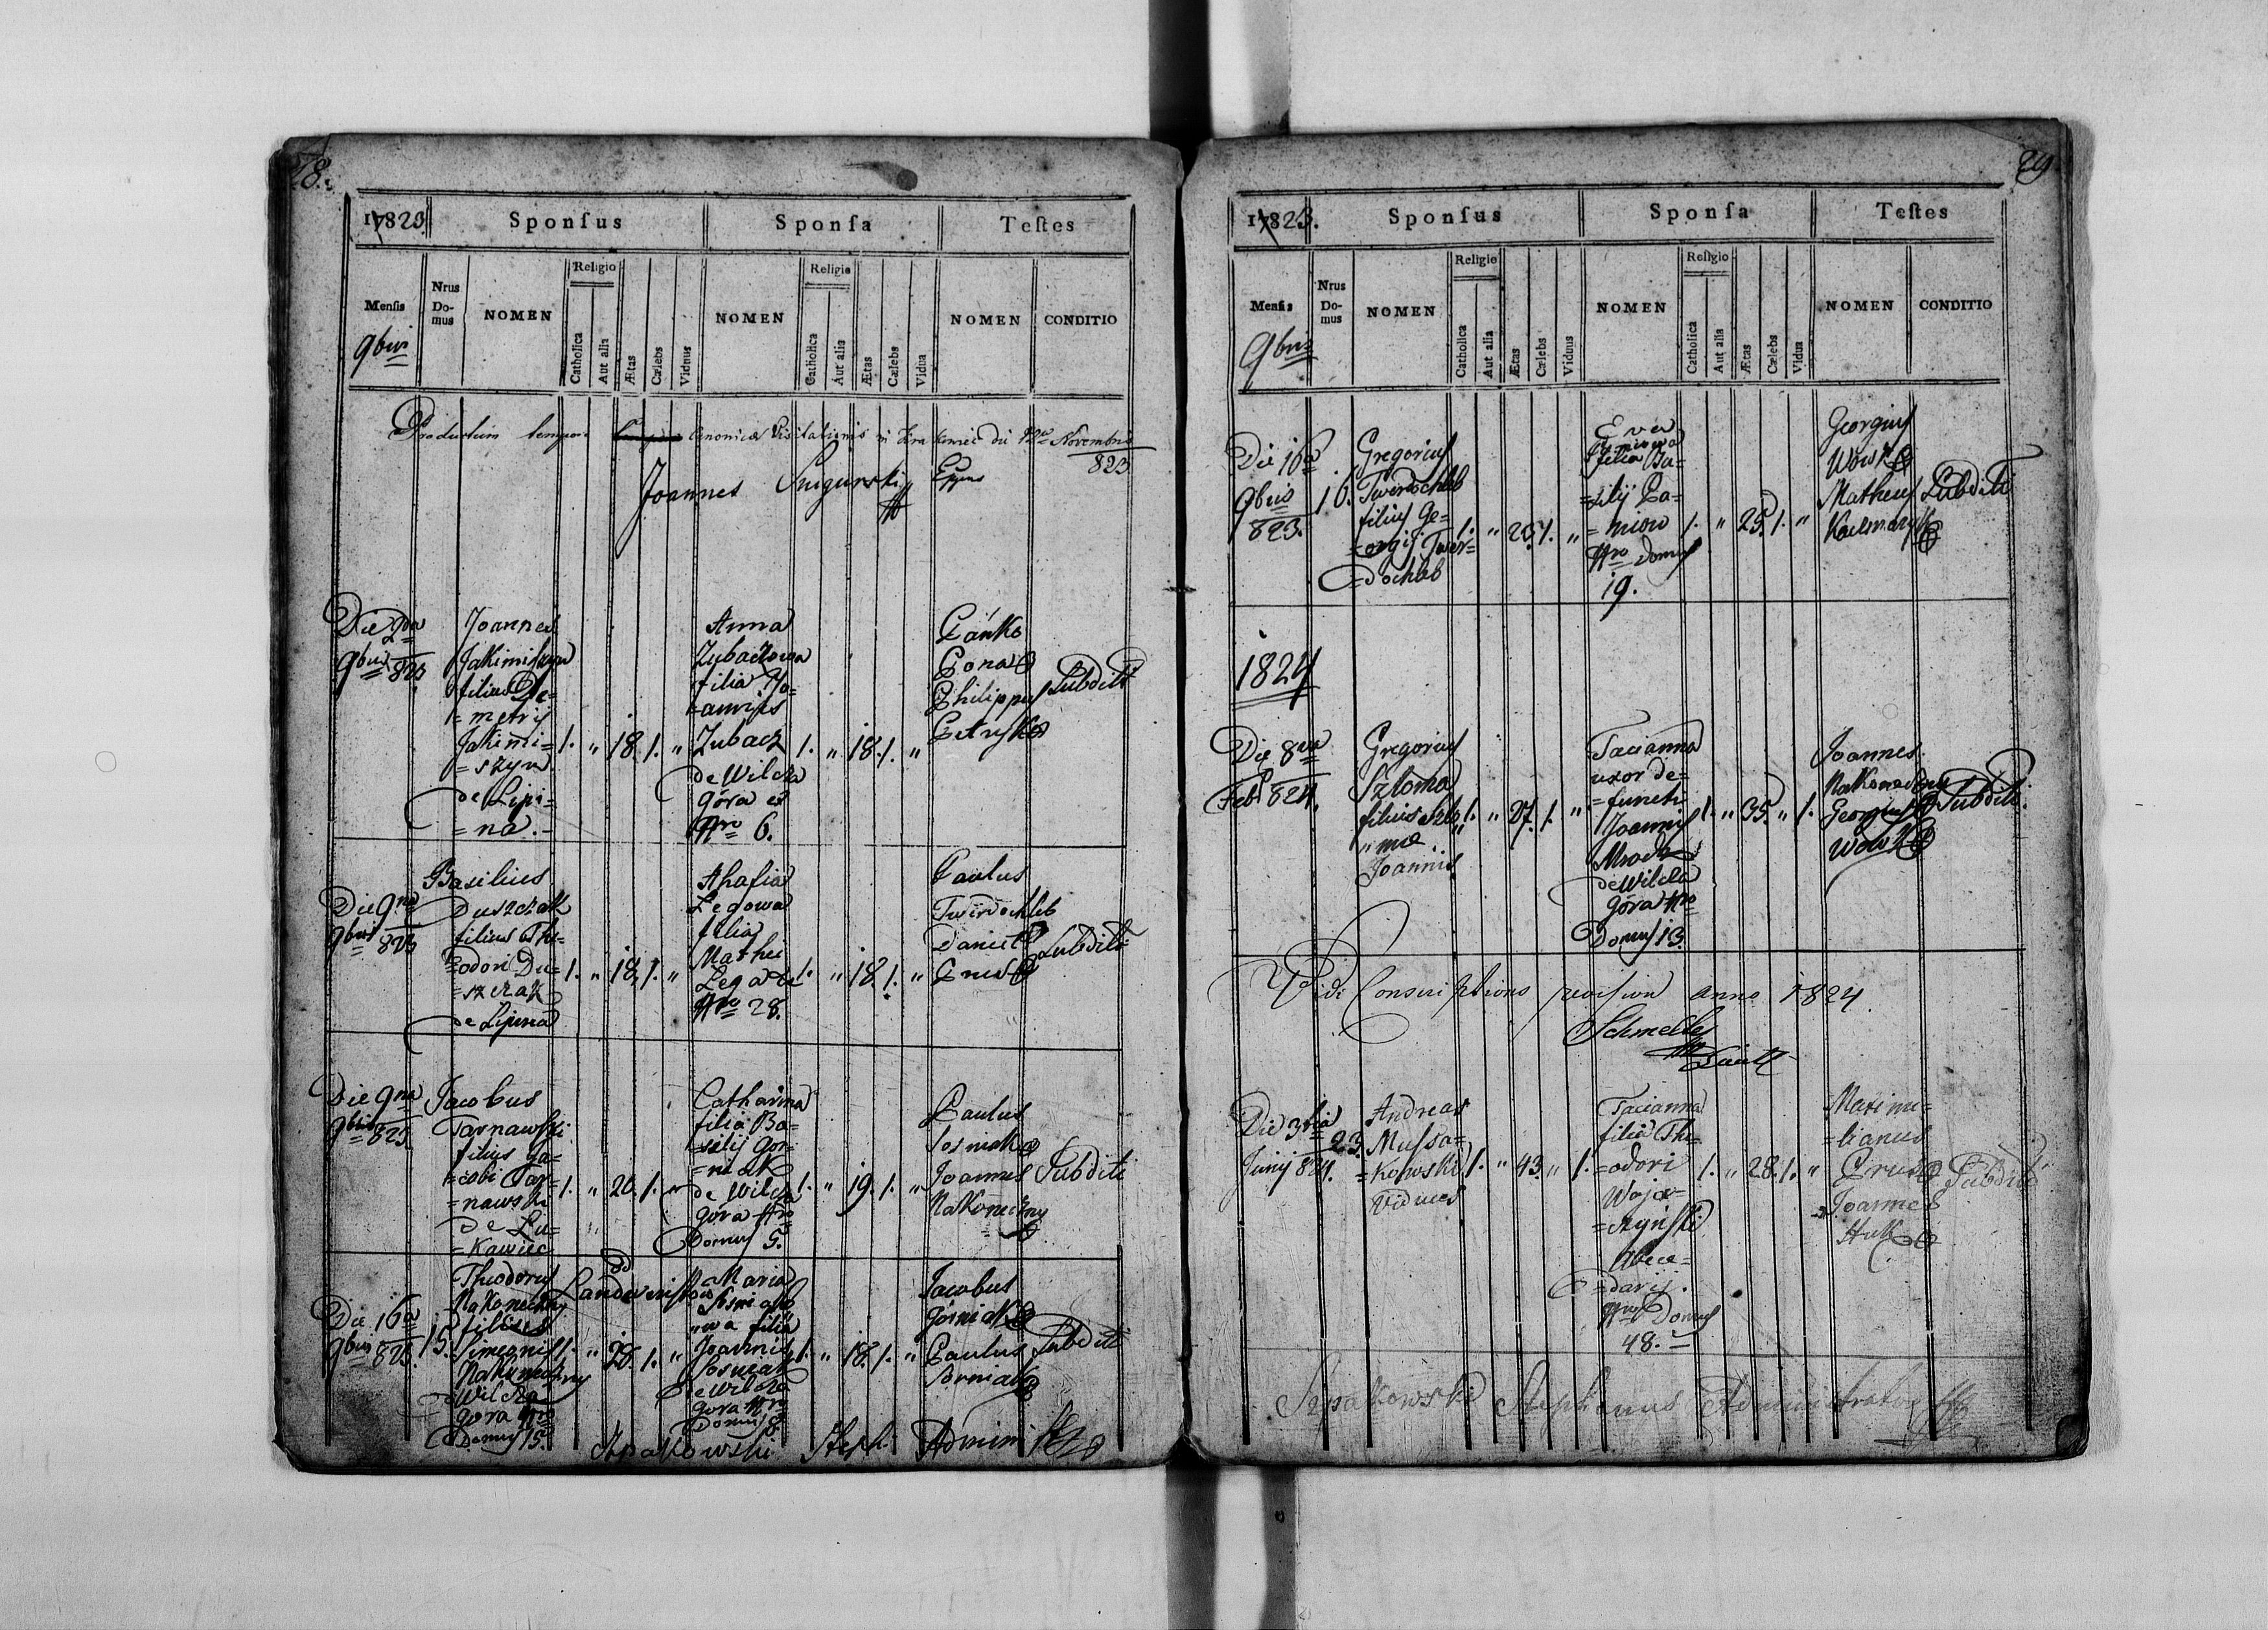 28.
1823
Sponsus
Sponsa
Testes
Mensis
9bris
Nrus Do-mus
NOMEN
Religio
Catholica
Aut alia
Ætas
Cælebs
Viduus
NOMEN
Religio
Catholica
Aut alia
Ætas
Cælebs
Vidua
NOMEN
CONDITIO
Productum tempore Canonicæ Visitationis in die 12a Novembris
823
Joannes Snigurski Eppus
Die 2da
9bris 823
Joannes
Jakimiszyn
filius De=
=metrij
Jakimi=
=szyn
de Lipi=
=na.
1. " 18. 1. "
Anna
Zubaczowa
filia Jo=
=annis
Zubacz
de Wilcza
Góra ex
Nro 6.
1. " 18. 1. "
Pańko
Philippus
Petryk
Subditi
Die 9na
9bris 823
Basilius
Duszczak
filius The=
=odori Du=
=szczak
de Lipina
1. " 18. 1. "
Ahafia
Legowa
filia
Mathei
Lega de
Nro 28.
1. " 18. 1. "
Paulus
Twerdochleb
Daniel
Prus
Subditi
Die 9na
9bris 823
Jacobus
Tarnawski
filius Ja=
=cobi Tar=
=nawski
de Lu=
=kawiec
1. " 20. 1. "
Catharina
filia Ba=
=silij Gor=
=niak
de Wilcza
góra Nro
Domus 5.
1. " 19. 1. "
Paulus
Sosniak
Joannes
Nakoneczny
Subditi
Die 16a
9bris 823.
15.
Theodorus
Nakoneczny
filius
Simeonis
Nakoneczny
Wilcza
gora Nro
Domus 15.
1. " 28. 1. "
Maria
Sosniako
"wa filia
Joannis
Sosniak
de Wilcza
gora Nro
Domus 8.
1. " 18. 1. "
Jacobus
Górniak
Paulus
Sorniak
Subditi
Szpakowski Steph. Admin
29
1823.
Sponsus
Sponsa
Testes
Mensis
9bris
Nrus Do-mus
NOMEN
Religio
Catholica
Aut alia
Ætas
Cælebs
Viduus
NOMEN
Religio
Catholica
Aut alia
Ætas
Cælebs
Vidua
NOMEN
CONDITIO
Die 16a
9bris
823.
16.
Gregorius
Twerdochleb
filius Ge=
=orgij Twer=
=dochleb
1. " 25. 1. "
Eva
filia Ba=
=silij Pa=
=niow
Nro Domus
19.
1. " 25. 1. "
Georgius
Wowk
Matheus
Kaczmaryk
Subditi
1824
Die 8va
Feb. 824.
Gregorius
Szloma
filius Szlo
"mæ
Joannis
1. " 27. 1. "
Tacianna
uxor de=
=functi
Joannis
Mroch
de Wilcza
góra Nro
Domus 13.
1. " 35. " 1.
Joannes
Nakoneczny
Georgius
Wowk
Subditi
Vidi Conscriptions revision anno 1824
Schmelles
Die 3tia
Junij 824.
23.
Andreas
Mussa=
=kowski
Viduus
1. " 43. " 1.
Tacianna
filia The=
=odori
Woja=
=czyński
Abece=
=darij.
Nro Domus
48.
1. " 28. 1. "
Maximi=
=lianus
Prus
Joannes
Huk
Subditi
Szpakowski Stephanus Administrator